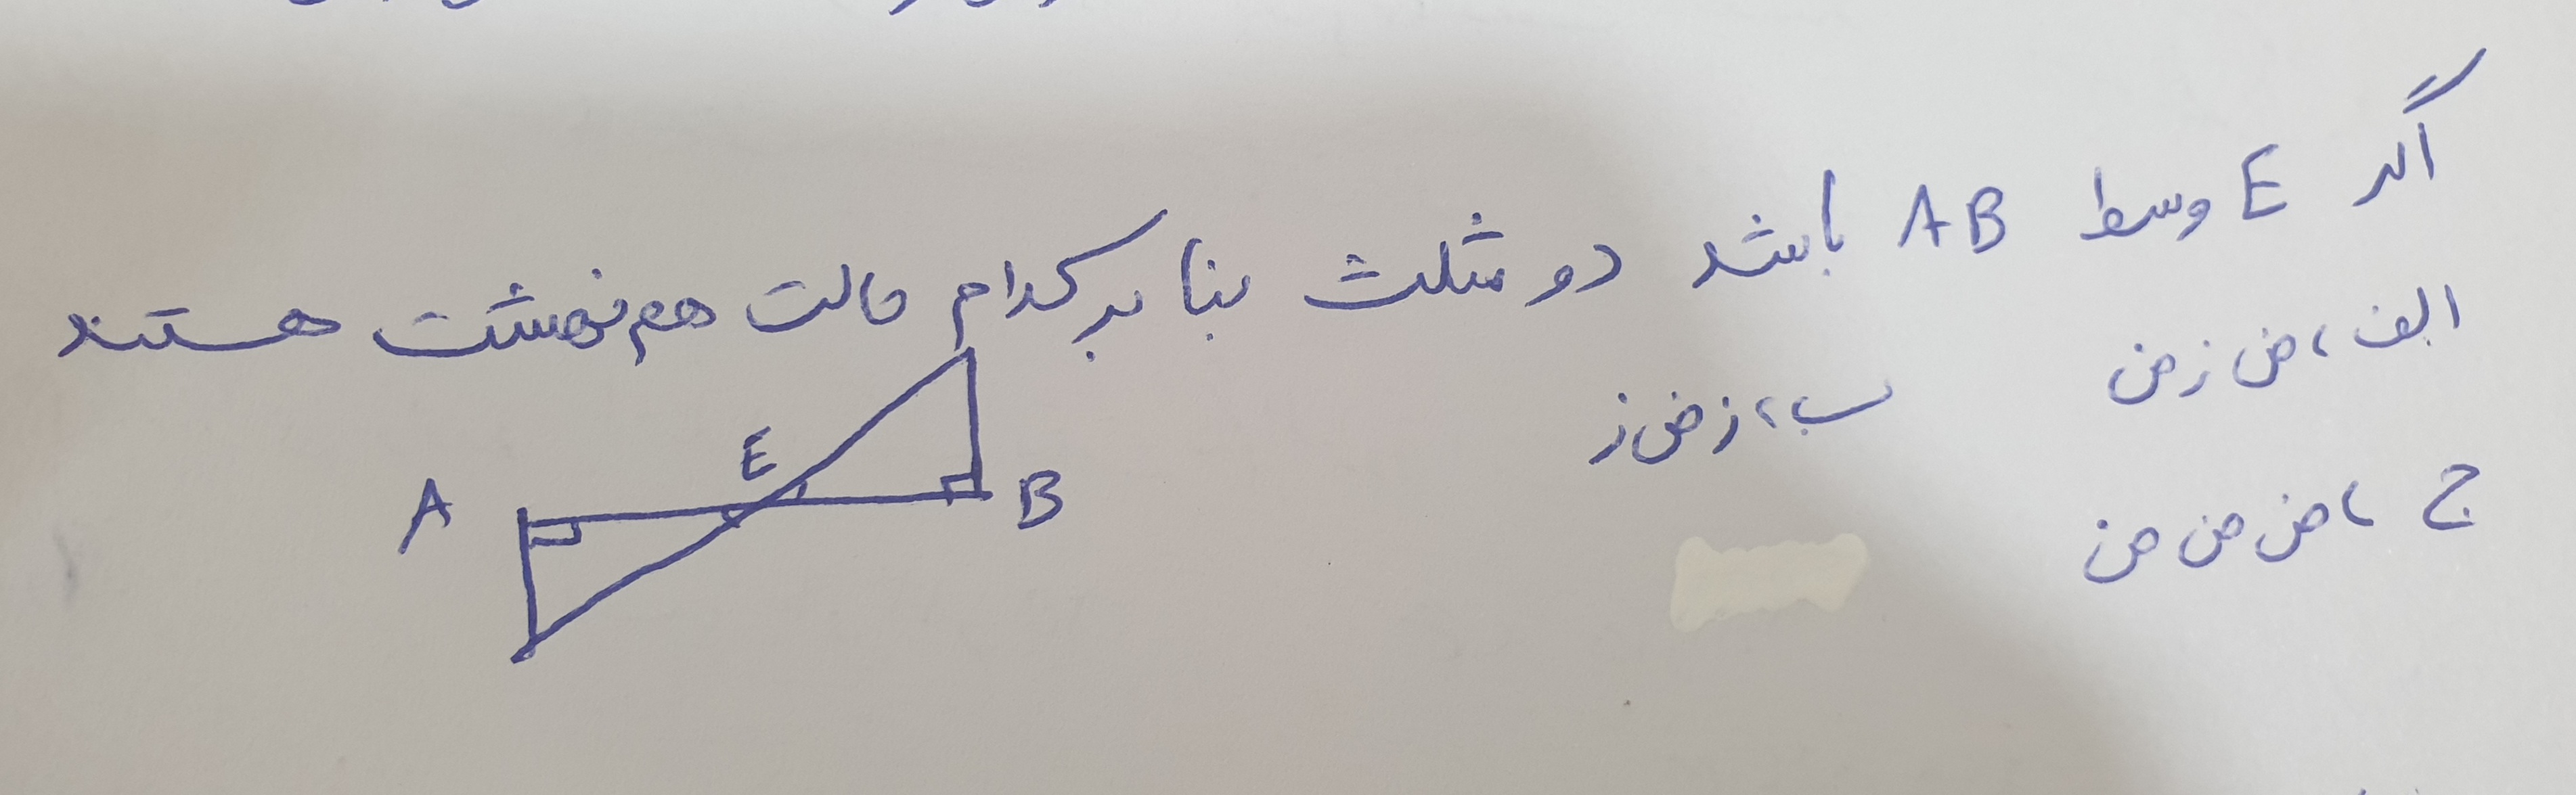 اگر E وسط AB باشد دو مثلث بنا بر کدام حالت هم نهشت هستند
الف، ض ز ض
ب، ز ض ز
ج، ض ض ض
E
A
B